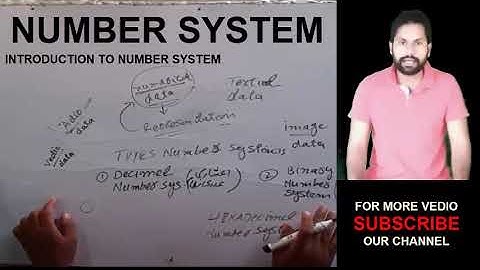 NUMBER SYSTEM
INTRODUCTION TO NUMBER SYSTEM
numarical
data
Textual
data
Adio
data
Representation
image
data
Vedio
data
TYPES Number systems
① Decimel
Number sys
② Binary
Number
System
HEXADecimel
Number syst
FOR MORE VEDIO
SUBSCRIBE
OUR CHANNEL